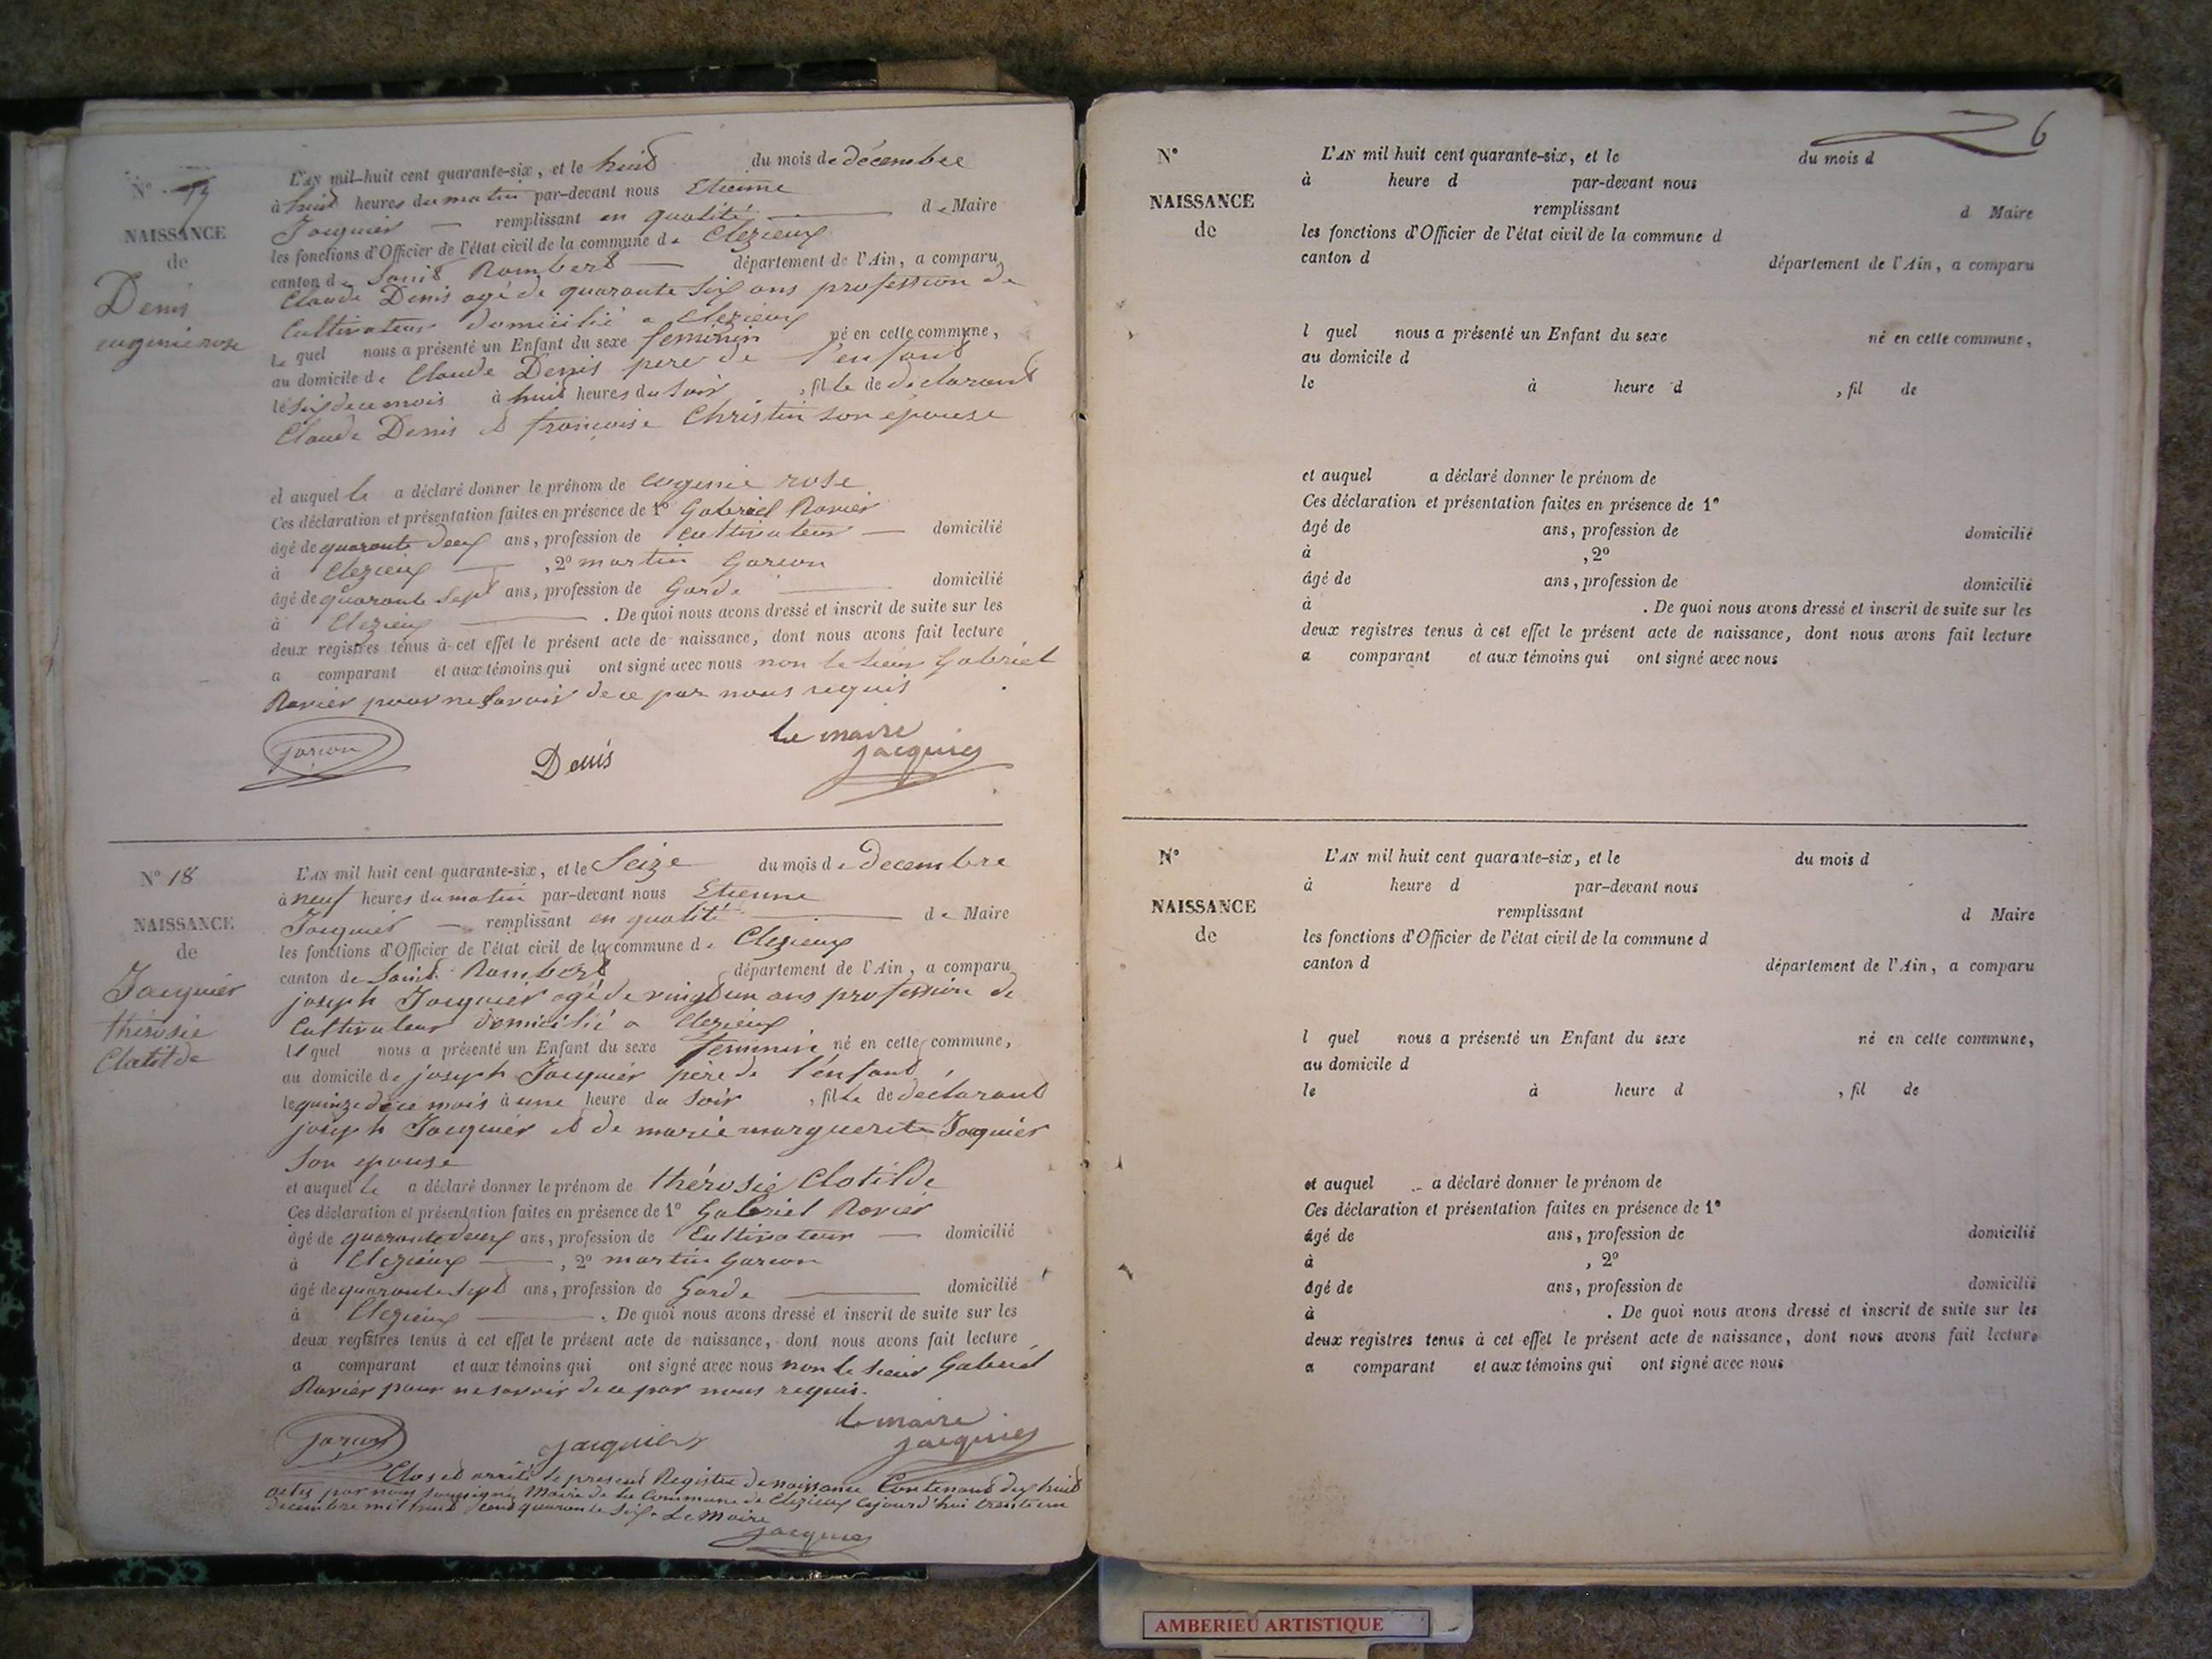 N° 17
NAISSANCE
de
Denis
eugenie rose
L'AN mil-huit cent quarante-six, et le huit du mois de décembre
à huit heures du matin par-devant nous Etienne
Jacquier — remplissant en qualité — de Maire
les fonctions d'Officier de l'état civil de la commune de Clezieux
canton de Saint Rambert — département de l'Ain, a comparu
Claude Denis agé de quarante six ans profession de
Cultivateur domicilié a Clezieux
le quel nous a présenté un Enfant du sexe feminin né en cette commune,
au domicile de Claude Denis pere de l'enfant
le six de ce mois à huit heures du soir , fille de declarant
Claude Denis et francoise Christin son epouse
et auquel le a déclaré donner le prénom de eugenie rose
Ces déclaration et présentation faites en présence de 1° Gabriel Ravier
âgé de quarante deux ans, profession de Cultivateur — domicilié
à Clezieux — , 2° martin Garcon
âgé de quarante sept ans, profession de Garde — domicilié
à Clezieux — . De quoi nous avons dressé et inscrit de suite sur les
deux registres tenus à cet effet le présent acte de naissance, dont nous avons fait lecture
a comparant et aux témoins qui ont signé avec nous non le sieur Gabriel
Ravier pour ne savoir de ce par nous requis
le maire
garcon Denis jacquier
N° 18
NAISSANCE
de
Jacquier
thérosie
Clotilde
L'AN mil huit cent quarante-six, et le Seize du mois de Decembre
à neuf heures du matin par-devant nous Etienne
Jacquier — remplissant en qualité — de Maire
les fonctions d'Officier de l'état civil de la commune de Clezieux
canton de Saint Rambert département de l'Ain, a comparu
joseph Jacquier agé de vingt un ans profession de
Cultivateur domicilié a Clezieux
le quel nous a présenté un Enfant du sexe feminin né en cette commune,
au domicile de joseph Jacquier père de l'enfant
le quinze de ce mois à une heure du soir , fille de declarant
joseph Jacquier et de marie marguerite Jacquier
Son epouse
et auquel le a déclaré donner le prénom de thérosie Clotilde
Ces déclaration et présentation faites en présence de 1° Gabriel Ravier
âgé de quarante deux ans, profession de Cultivateur — domicilié
à Clezieux — , 2° martin Garcon
âgé de quarante sept ans, profession de Garde — domicilié
à Clezieux — . De quoi nous avons dressé et inscrit de suite sur les
deux registres tenus à cet effet le présent acte de naissance, dont nous avons fait lecture
a comparant et aux témoins qui ont signé avec nous non le sieur Gabriel
Ravier pour ne savoir de ce par nous requis.
le maire
garcon jacquier jacquier
Clos et arrêté le present Registre de naissance Contenant dix huit
actes par nous soussigné Maire de la Commune de Clezieux cejourd'hui trente un
decembre mil huit cent quarante six. Le Maire
jacquier
6
N°
NAISSANCE
de
L'AN mil huit cent quarante-six, et le du mois d
à heure d par-devant nous
remplissant d Maire
les fonctions d'Officier de l'état civil de la commune d
canton d département de l'Ain, a comparu
l quel nous a présenté un Enfant du sexe né en cette commune,
au domicile d
le à heure d , fil de
et auquel a déclaré donner le prénom de
Ces déclaration et présentation faites en présence de 1°
âgé de ans, profession de domicilié
à , 2°
âgé de ans, profession de domicilié
à . De quoi nous avons dressé et inscrit de suite sur les
deux registres tenus à cet effet le présent acte de naissance, dont nous avons fait lecture
a comparant et aux témoins qui ont signé avec nous
N°
NAISSANCE
de
L'AN mil huit cent quarante-six, et le du mois d
à heure d par-devant nous
remplissant d Maire
les fonctions d'Officier de l'état civil de la commune d
canton d département de l'Ain, a comparu
l quel nous a présenté un Enfant du sexe né en cette commune,
au domicile d
le à heure d , fil de
et auquel a déclaré donner le prénom de
Ces déclaration et présentation faites en présence de 1°
âgé de ans, profession de domicilié
à , 2°
âgé de ans, profession de domicilié
à . De quoi nous avons dressé et inscrit de suite sur les
deux registres tenus à cet effet le présent acte de naissance, dont nous avons fait lecture
a comparant et aux témoins qui ont signé avec nous
AMBERIEU ARTISTIQUE